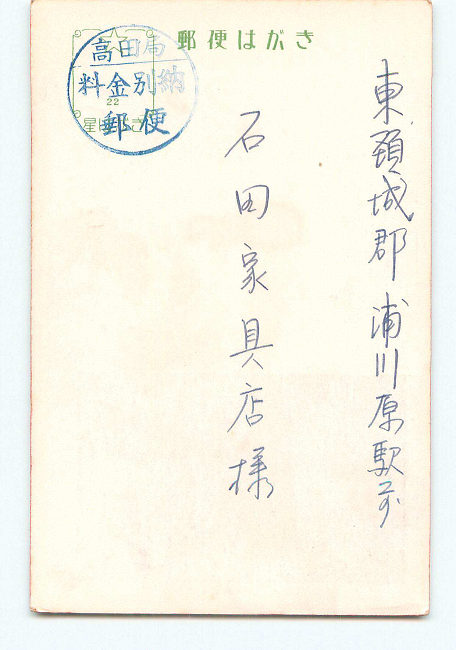 郵便はがき
高田局
料金別納
22
郵便
東頚城郡浦川原駅前
石田家具店様